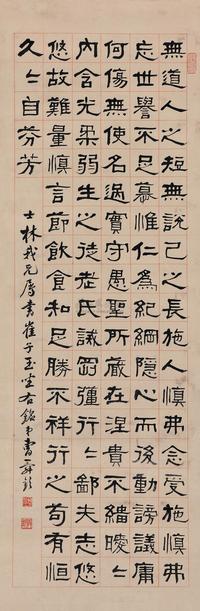 無道人之短無說己之長施人慎弗念受施慎弗
忘世譽不足慕惟仁為紀綱隱心而後動謗議庸
何傷無使名過實守愚聖所臧在涅貴不緇曖〻
內含光柔弱生之徒老氏誡剛彊行〻鄙夫志悠
悠故難量慎言節飲食知足勝不祥行之苟有恒
久〻自芬芳
士林我兄屬書崔子玉坐右銘弟曹